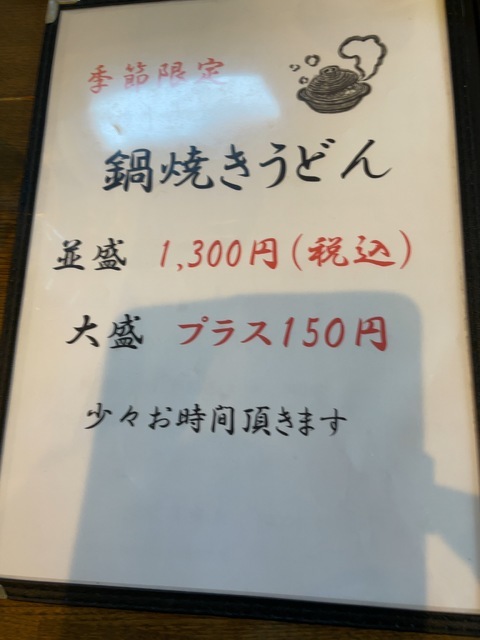 季節限定
鍋焼きうどん
並盛 1,300円(税込)
大盛 プラス150円
少々お時間頂きます